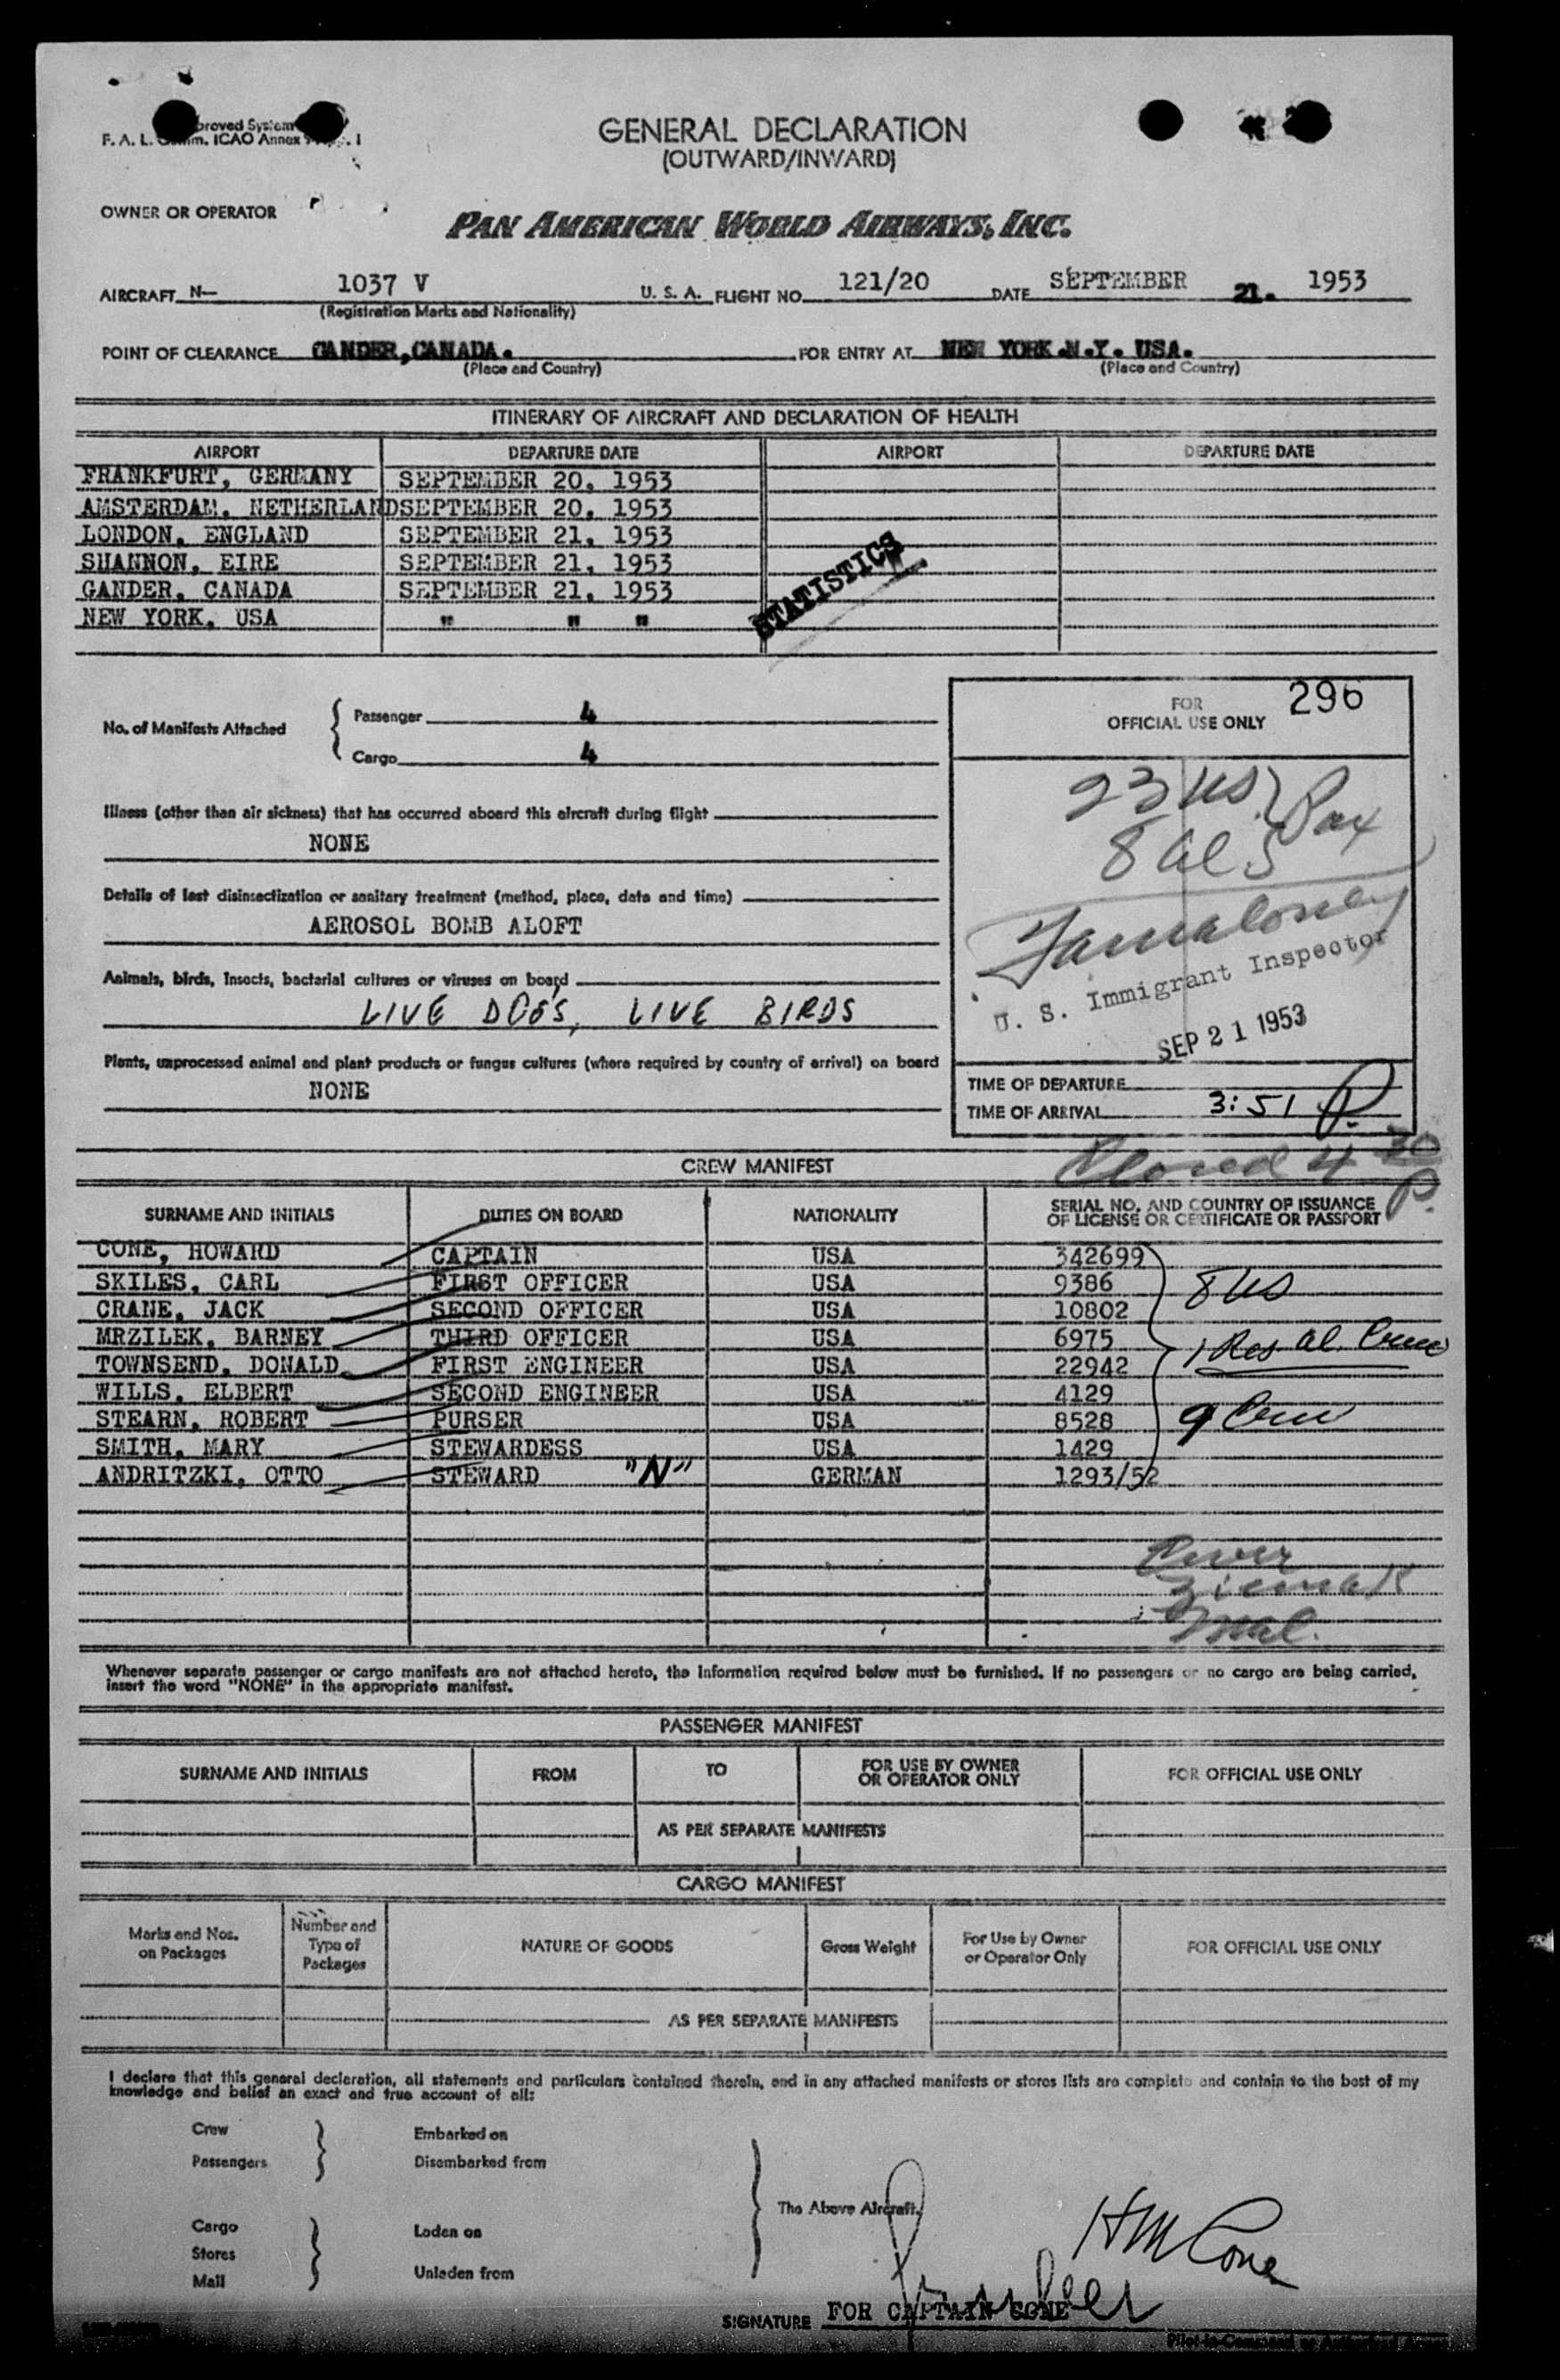 GENERAL DECLARATION
(OUTWARD/INWARD)
F. A. L. ICAO Annex
OWNER OR OPERATOR
PAN AMERICAN WORLD AIRWAYS, INC.
AIRCRAFT N- 1037 V U. S. A. FLIGHT NO. 121/20 DATE SEPTEMBER 21. 1953
(Registration Marks and Nationality)
POINT OF CLEARANCE GANDER, CANADA. FOR ENTRY AT NEW YORK.N.Y. USA.
(Place and Country) (Place and Country)
ITINERARY OF AIRCRAFT AND DECLARATION OF HEALTH
AIRPORT DEPARTURE DATE AIRPORT DEPARTURE DATE
FRANKFURT, GERMANY SEPTEMBER 20, 1953
AMSTERDAM, NETHERLAND SEPTEMBER 20, 1953
LONDON, ENGLAND SEPTEMBER 21, 1953
SHANNON, EIRE SEPTEMBER 21, 1953
GANDER, CANADA SEPTEMBER 21, 1953
NEW YORK, USA " " "
STATISTICS
No. of Manifests Attached
Passenger 4
Cargo 4
FOR
OFFICIAL USE ONLY
296
23 US
8 als
Pax
U. S. Immigrant Inspector
SEP 21 1953
Illness (other than air sickness) that has occurred aboard this aircraft during flight
NONE
Details of last disinsectization or sanitary treatment (method, place, date and time)
AEROSOL BOMB ALOFT
Animals, birds, insects, bacterial cultures or viruses on board
LIVE DOGS, LIVE BIRDS
Plants, unprocessed animal and plant products or fungus cultures (where required by country of arrival) on board
NONE
TIME OF DEPARTURE
TIME OF ARRIVAL 3:51 P.
Closed 4 30 P.
CREW MANIFEST
SURNAME AND INITIALS DUTIES ON BOARD NATIONALITY SERIAL NO. AND COUNTRY OF ISSUANCE
OF LICENSE OR CERTIFICATE OR PASSPORT
CONE, HOWARD CAPTAIN USA 342699
SKILES, CARL FIRST OFFICER USA 9386 8 US
CRANE, JACK SECOND OFFICER USA 10802
MRZILEK, BARNEY THIRD OFFICER USA 6975 1 Res al. Crew
TOWNSEND, DONALD FIRST ENGINEER USA 22942
WILLS, ELBERT SECOND ENGINEER USA 4129
STEARN, ROBERT PURSER USA 8528 9 Crew
SMITH, MARY STEWARDESS USA 1429
ANDRITZKI, OTTO STEWARD "N" GERMAN 1293/52
Whenever separate passenger or cargo manifests are not attached hereto, the information required below must be furnished. If no passengers or no cargo are being carried,
insert the word "NONE" in the appropriate manifest.
PASSENGER MANIFEST
SURNAME AND INITIALS FROM TO FOR USE BY OWNER
OR OPERATOR ONLY FOR OFFICIAL USE ONLY
AS PER SEPARATE MANIFESTS
CARGO MANIFEST
Marks and Nos.
on Packages
Number and
Type of
Packages
NATURE OF GOODS
Gross Weight
For Use by Owner
or Operator Only
FOR OFFICIAL USE ONLY
AS PER SEPARATE MANIFESTS
I declare that this general declaration, all statements and particulars contained therein, and in any attached manifests or stores lists are complete and contain to the best of my
knowledge and belief an exact and true account of all:
Crew Embarked on
Passengers Disembarked from
The Above Aircraft.
Cargo Laden on
Stores
Mail Unladen from
H M Cone
SIGNATURE FOR CAPTAIN CONE